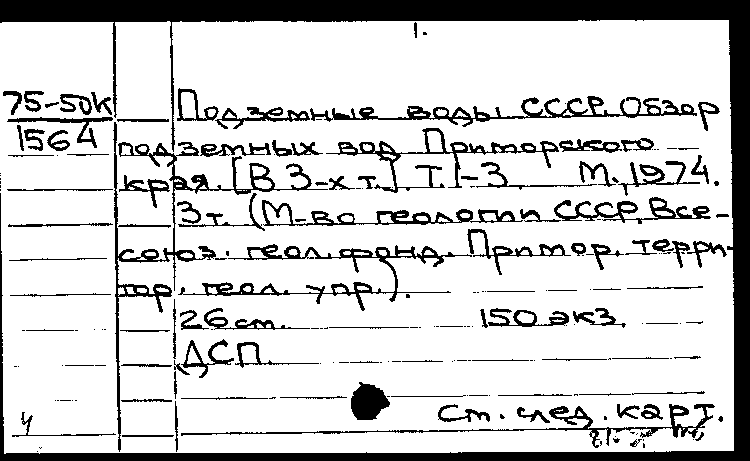 1.
75-50к
1564
Подземные воды СССР. Обзор
подземных вод Приморского
края. [В 3-х т.]. Т. 1-3. М., 1974.
3 т. (М-во геологии СССР. Все-
союз. геол. фонд. Примор. терри-
тор. геол. упр.).
26 см. 150 экз.
ДСП.
См. след. карт.